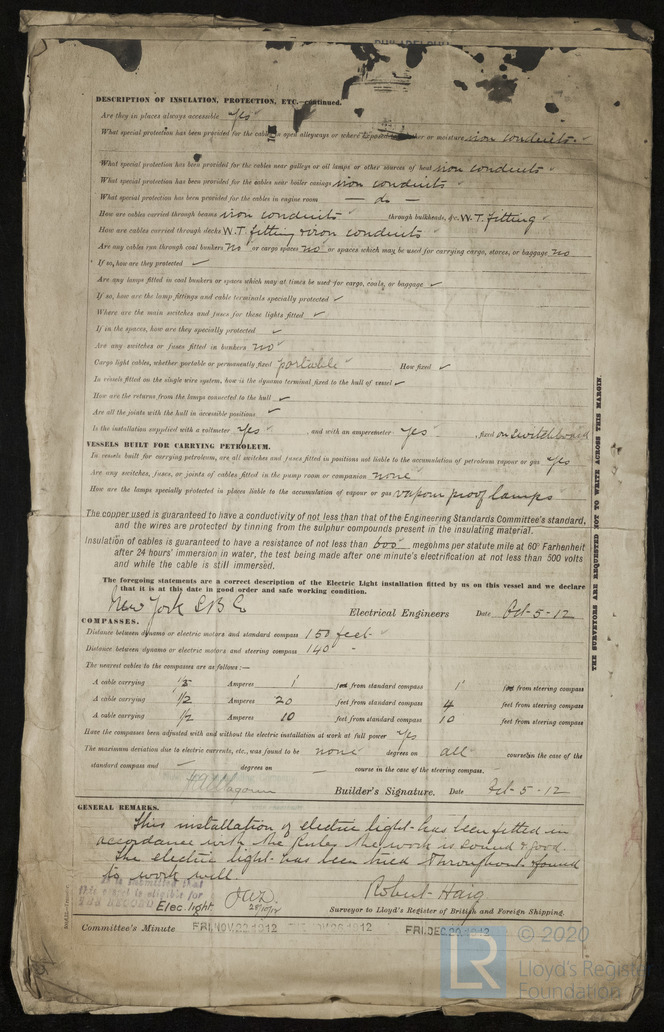 DESCRIPTION OF INSULATION, PROTECTION, ETC.—continued.
Are they in places always accessible yes
What special protection has been provided for the cables in open alleyways or where exposed to weather or moisture iron conduits
What special protection has been provided for the cables near galleys or oil lamps or other sources of heat iron conduits
What special protection has been provided for the cables near boiler casings iron conduits
What special protection has been provided for the cables in engine room — do —
How are cables carried through beams iron conduits through bulkheads, &c. W.T. fitting
How are cables carried through decks W.T. fitting & iron conduits
Are any cables run through coal bunkers no or cargo spaces no or spaces which may be used for carrying cargo, stores, or baggage no
If so, how are they protected ✓
Are any lamps fitted in coal bunkers or spaces which may at times be used for cargo, coals, or baggage ✓
If so, how are the lamp fittings and cable terminals specially protected ✓
Where are the main switches and fuses for these lights fitted ✓
If in the spaces, how are they specially protected ✓
Are any switches or fuses fitted in bunkers no
Cargo light cables, whether portable or permanently fixed portable How fixed ✓
In vessels fitted on the single wire system, how is the dynamo terminal fixed to the hull of vessel ✓
How are the returns from the lamps connected to the hull ✓
Are all the joints with the hull in accessible positions ✓
Is the installation supplied with a voltmeter yes , and with an amperemeter yes , fixed on switchboard
VESSELS BUILT FOR CARRYING PETROLEUM.
In vessels built for carrying petroleum, are all switches and fuses fitted in positions not liable to the accumulation of petroleum vapour or gas yes
Are any switches, fuses, or joints of cables fitted in the pump room or companion none
How are the lamps specially protected in places liable to the accumulation of vapour or gas vapour proof lamps
The copper used is guaranteed to have a conductivity of not less than that of the Engineering Standards Committee's standard,
and the wires are protected by tinning from the sulphur compounds present in the insulating material.
Insulation of cables is guaranteed to have a resistance of not less than 600 megohms per statute mile at 60° Farhenheit
after 24 hours' immersion in water, the test being made after one minute's electrification at not less than 500 volts
and while the cable is still immersed.
The foregoing statements are a correct description of the Electric Light installation fitted by us on this vessel and we declare
that it is at this date in good order and safe working condition.
New York S.B. Co Electrical Engineers Date Oct-5-12
COMPASSES.
Distance between dynamo or electric motors and standard compass 150 feet
Distance between dynamo or electric motors and steering compass 140 "
The nearest cables to the compasses are as follows:—
A cable carrying Amperes 1' feet from standard compass 1' feet from steering compass
A cable carrying 1/2 Amperes 20 feet from standard compass 4 feet from steering compass
A cable carrying 1/2 Amperes 10 feet from standard compass 10 feet from steering compass
Have the compasses been adjusted with and without the electric installation at work at full power yes
The maximum deviation due to electric currents, etc., was found to be none degrees on all courses in the case of the
standard compass and — degrees on — course in the case of the steering compass.
Builder's Signature. Date Oct-5-12
GENERAL REMARKS.
This installation of electric light has been fitted in
accordance with the Rules the work is sound & good.
The electric light has been tried throughout & found
to work well.
It is submitted that
this vessel is eligible for
THE RECORD Elec. light.
Robert Haig
Surveyor to Lloyd's Register of British and Foreign Shipping.
Committee's Minute FRI. NOV. 22 1912 FRI. DEC. 20 1912
THE SURVEYORS ARE REQUESTED NOT TO WRITE ACROSS THIS MARGIN.
LR
© 2020
Lloyd's Register
Foundation